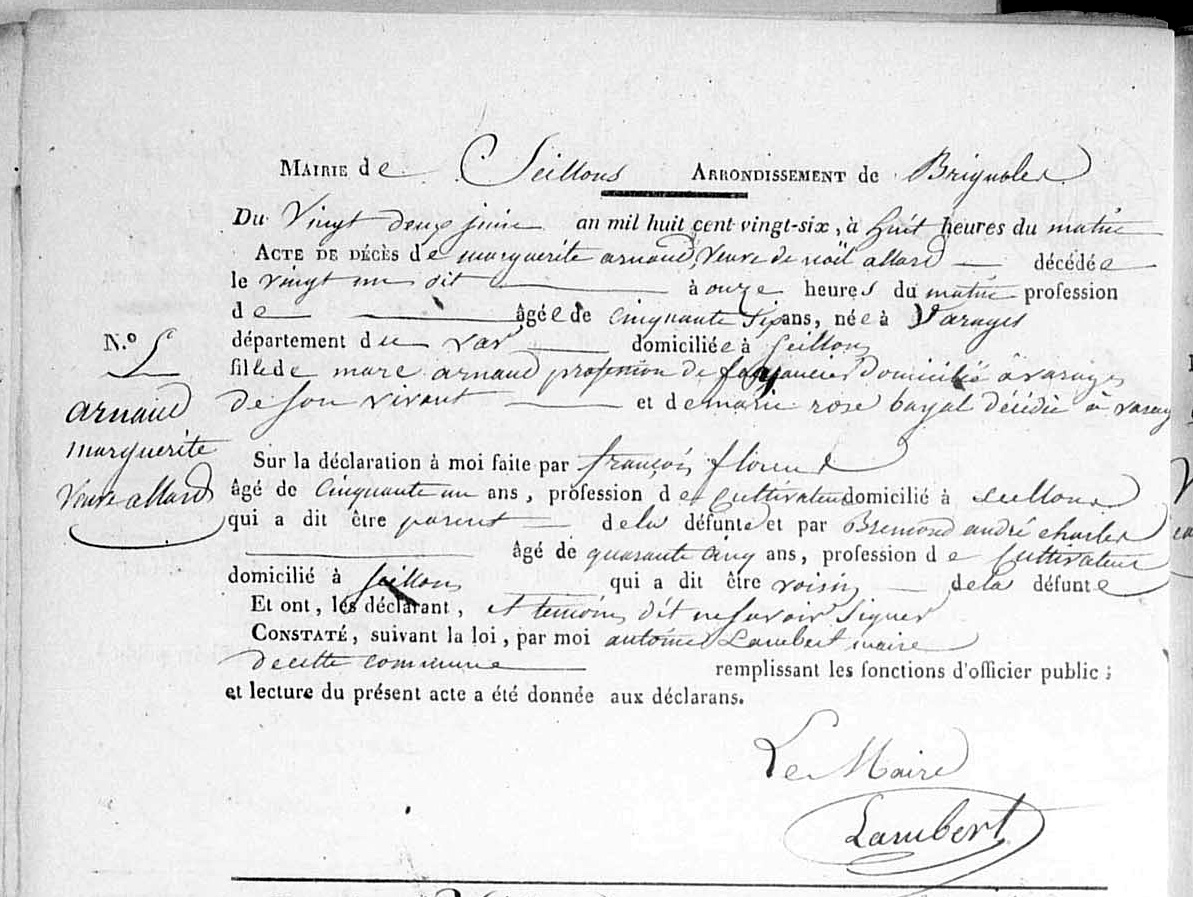 Mairie de Seillons Arrondissement de Brignoles
Du Vingt deux juin an mil huit cent vingt-six, à huit heures du matin
Acte de décès de marguerite arnaud, Veuve de noël allard décédée
le vingt un dit à onze heures du matin profession
de âgée de cinquante six ans, née à Varages
département du var domiciliée à Seillons
N.º 5
fille de marc arnaud profession de fayancier domicilié à varages
arnaud
marguerite
Veuve allard
de son vivant et de marie rose bayal décédée à varag
Sur la déclaration à moi faite par françois florend
âgé de cinquante un ans, profession de cultivateur domicilié à seillons
qui a dit être parent de la défunte et par Bremond andré charles
âgé de quarante cinq ans, profession de cultivateur
domicilié à Seillons qui a dit être voisin de la défunte
Et ont, les déclarant, et temoins dit ne savoir signer
Constaté, suivant la loi, par moi antoine Lambert maire
de cette commune remplissant les fonctions d'officier public ;
et lecture du présent acte a été donnée aux déclarans.
Le Maire
Lambert